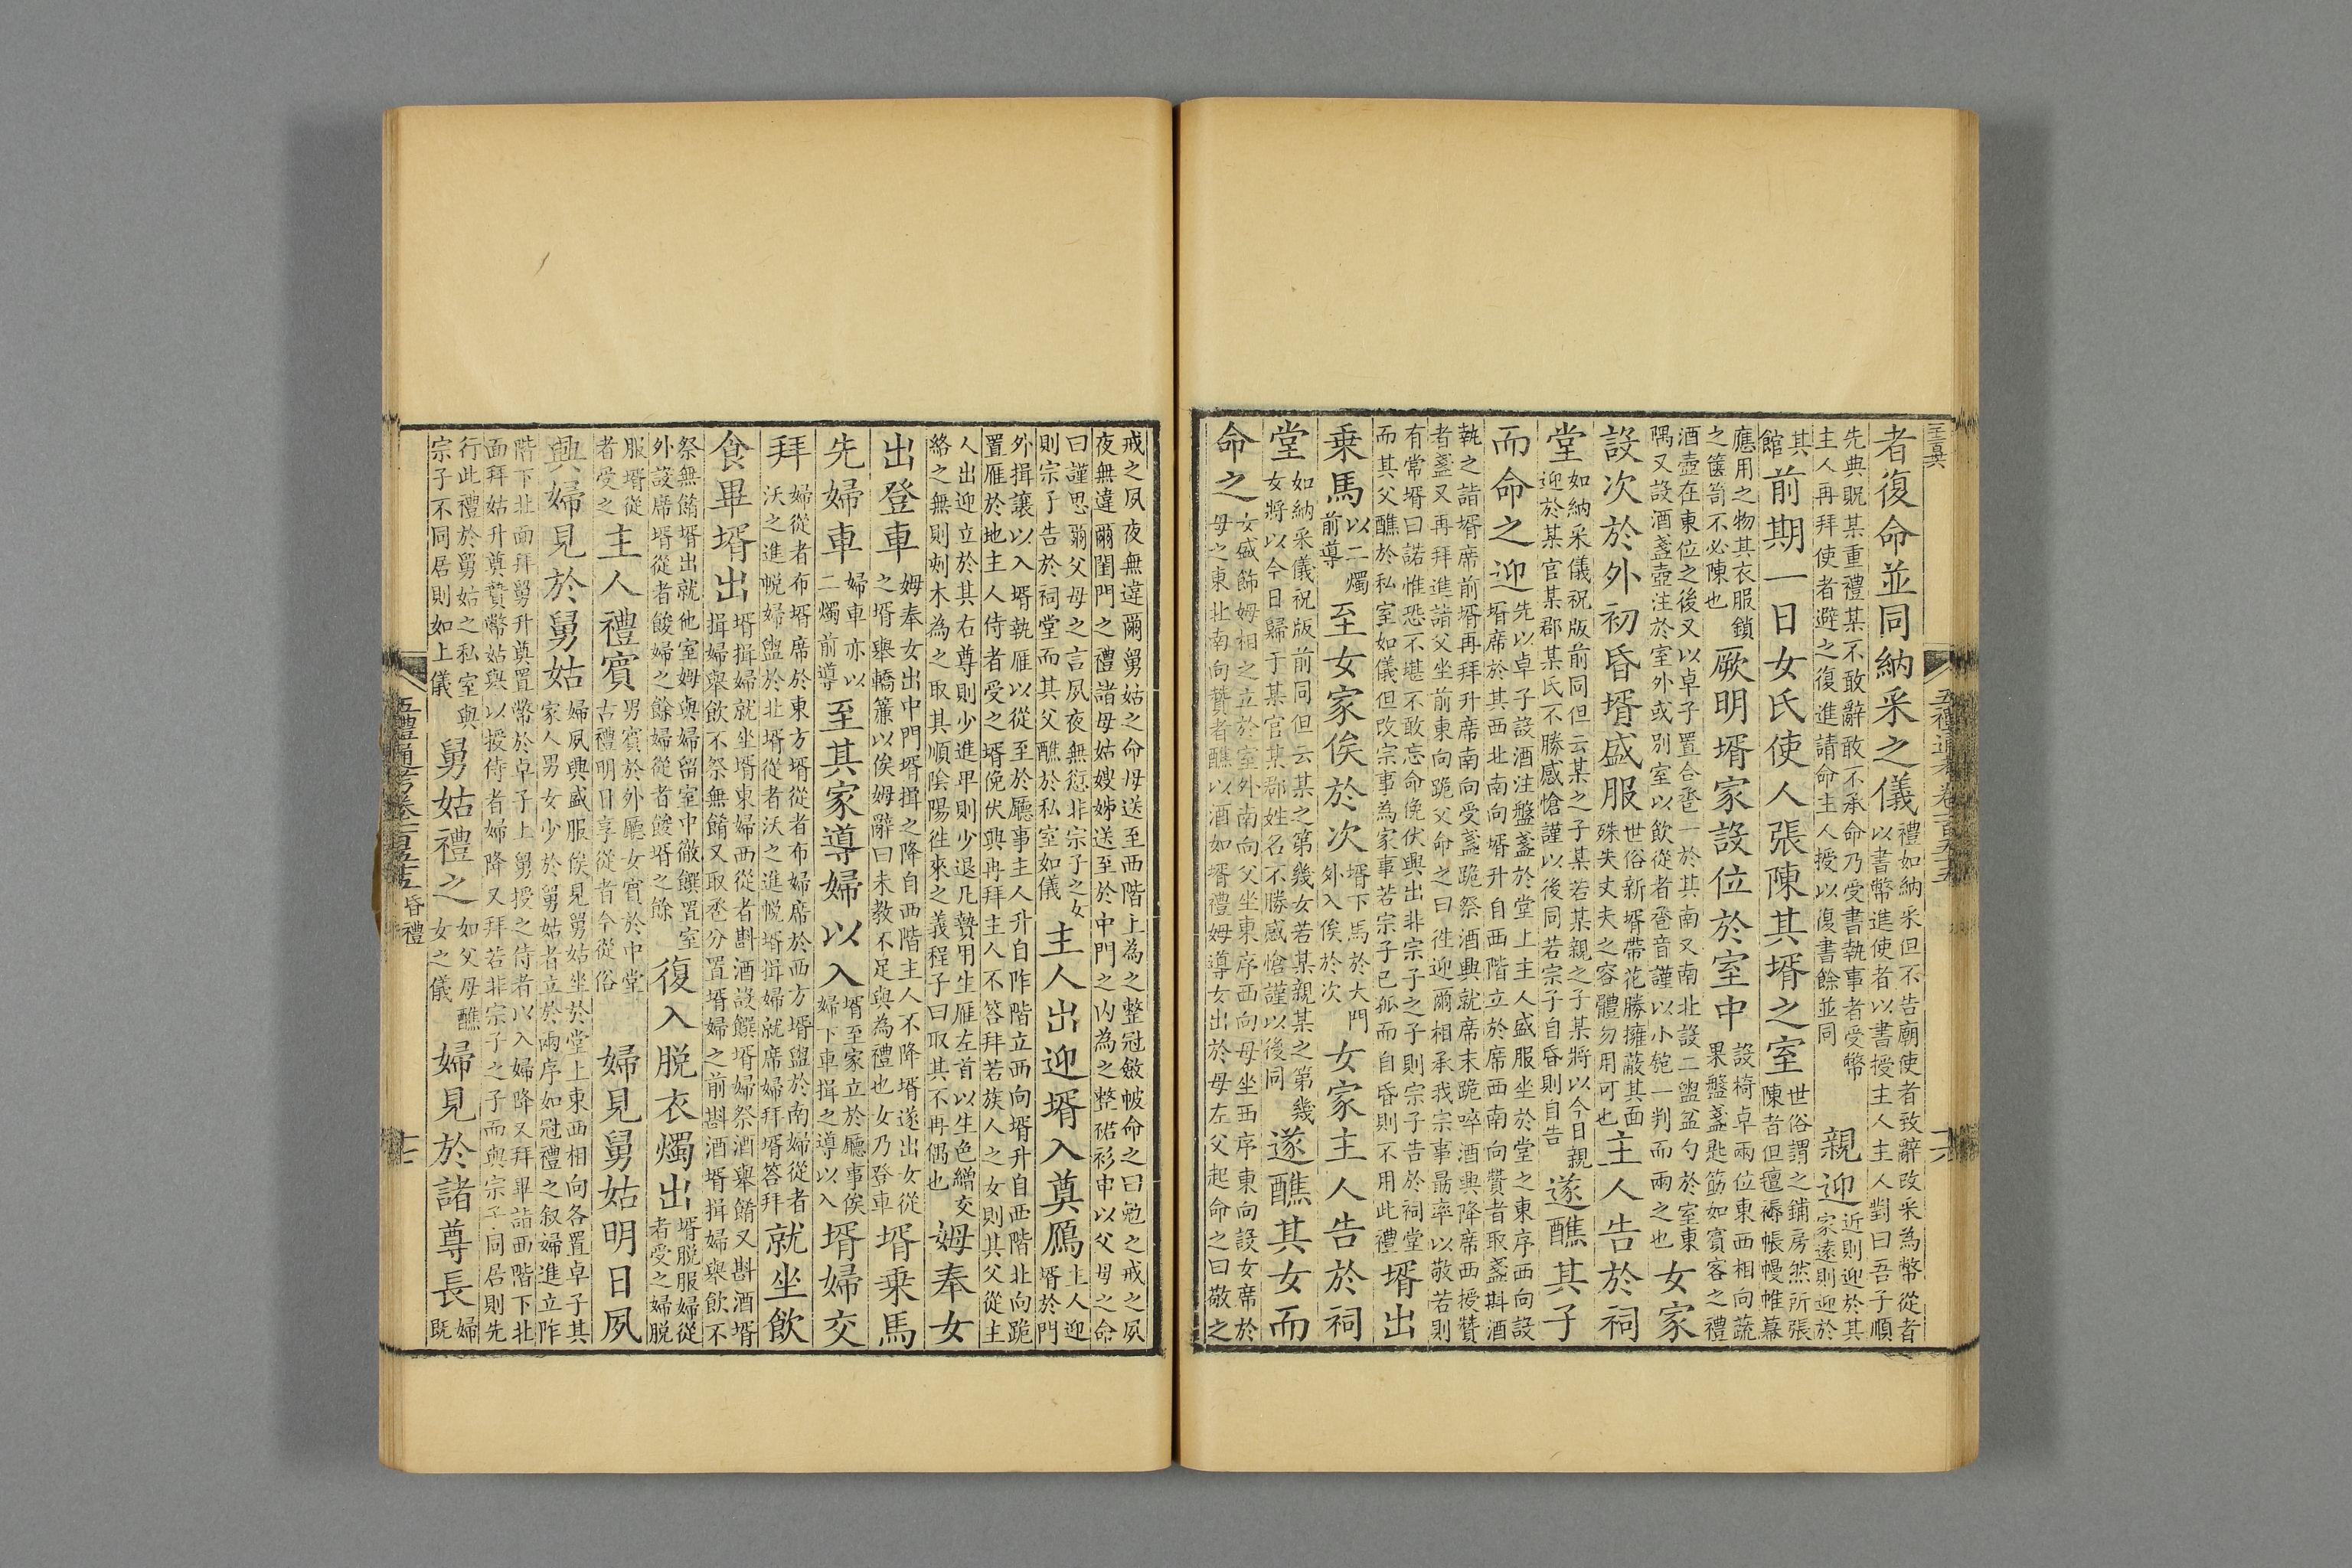 五禮通考 卷一百五十五 十六
者復命並同納采之儀禮如納采但不告廟使者致辭改采為幣從者以書幣進使者以書授主人主人對曰吾子順
先典貺某重禮某不敢辭敢不承命乃受書執事者受幣主人再拜使者避之復進請命主人授以復書餘並同親迎近則迎於其家遠則迎於
其館前期一日女氏使人張陳其壻之室世俗謂之鋪房然所張陳者但氊褥帳幔帷幕
應用之物其衣服鎖之篋笥不必陳也厥明壻家設位於室中設椅卓兩位東西相向蔬果盤盞匙筯如賓客之禮
酒壺在東位之後又以卓子置合巹一於其南又南北設二盥盆勺於室東隅又設酒盞壺注於室外或別室以飲從者巹音謹以小匏一判而兩之也女家
設次於外初昏壻盛服世俗新壻帶花勝擁蔽其面殊失丈夫之容體勿用可也主人告於祠
堂如納采儀祝版前同但云某之子某若某親之子某將以今日親迎於某官某郡某氏不勝感愴謹以後同若宗子自昏則自告遂醮其子
而命之迎先以卓子設酒注盤盞於堂上主人盛服坐於堂之東序西向設壻席於其西北南向壻升自西階立於席西南向贊者取盞斟酒
執之詣壻席前壻再拜升席南向受盞跪祭酒興就席末跪啐酒興降席西授贊者盞又再拜進詣父坐前東向跪父命之曰往迎爾相承我宗事勗率以敬若則
有常壻曰諾惟恐不堪不敢忘命俛伏興出非宗子之子則宗子告於祠堂而其父醮於私室如儀但改宗事為家事若宗子已孤而自昏則不用此禮壻出
乗馬以二燭前導至女家俟於次壻下馬於大門外入俟於次女家主人告於祠
堂如納采儀祝版前同但云某之第幾女若某親某之第幾女將以今日歸于某官某郡姓名不勝感愴謹以後同遂醮其女而
命之女盛飾姆相之立於室外南向父坐東序西向母坐西序東向設女席於母之東北南向贊者醮以酒如壻禮姆導女出於母左父起命之曰敬之
戒之夙夜無違爾舅姑之命母送至西階上為之整冠斂帔命之曰勉之戒之夙夜無違爾閨門之禮諸母姑嫂姊送至於中門之内為之整裙衫申以父母之命
曰謹思爾父母之言夙夜無愆非宗子之女則宗子告於祠堂而其父醮於私室如儀主人出迎壻入奠鴈主人迎壻於門
外揖讓以入壻執雁以從至於廳事主人升自阼階立西向壻升自西階北向跪置雁於地主人侍者受之壻俛伏興再拜主人不答拜若族人之女則其父從主
人出迎立於其右尊則少進卑則少退凡贄用生雁左首以生色繒交絡之無則刻木為之取其順陰陽徃來之義程子曰取其不再偶也姆奉女
出登車姆奉女出中門壻揖之降自西階主人不降壻遂出女從之壻舉轎簾以俟姆辭曰未教不足與為禮也女乃登車壻乘馬
先婦車婦車亦以二燭前導至其家導婦以入壻至家立於廳事俟婦下車揖之導以入壻婦交
拜婦從者布壻席於東方壻從者布婦席於西方壻盥於南婦從者沃之進帨婦盥於北壻從者沃之進帨壻揖婦就席婦拜壻答拜就坐飲
食畢壻出壻揖婦就坐壻東婦西從者斟酒設饌壻婦祭酒舉餚又斟酒壻揖婦舉飲不祭無餚又取巹分置壻婦之前斟酒壻揖婦舉飲不
祭無餚壻出就他室姆與婦留室中徹饌置室外設席壻從者餕婦之餘婦從者餕壻之餘復入脱衣燭出壻脱服婦從者受之婦脱
服壻從者受之主人禮賓男賓於外廳女賓於中堂古禮明日享從者今從俗婦見舅姑明日夙
興婦見於舅姑婦夙興盛服俟見舅姑坐於堂上東西相向各置卓子其家人男女少於舅姑者立於兩序如冠禮之叙婦進立阼
階下北面拜舅升奠置幣於卓子上舅授之侍者以入婦降又拜畢詣西階下北面拜姑升奠贄幣姑舉以授侍者婦降又拜若非宗子之子而與宗子同居則先
行此禮於舅姑之私室與宗子不同居則如上儀舅姑禮之如父母醮女之儀婦見於諸尊長婦既
五禮通考卷一百五十五 昏禮 十七